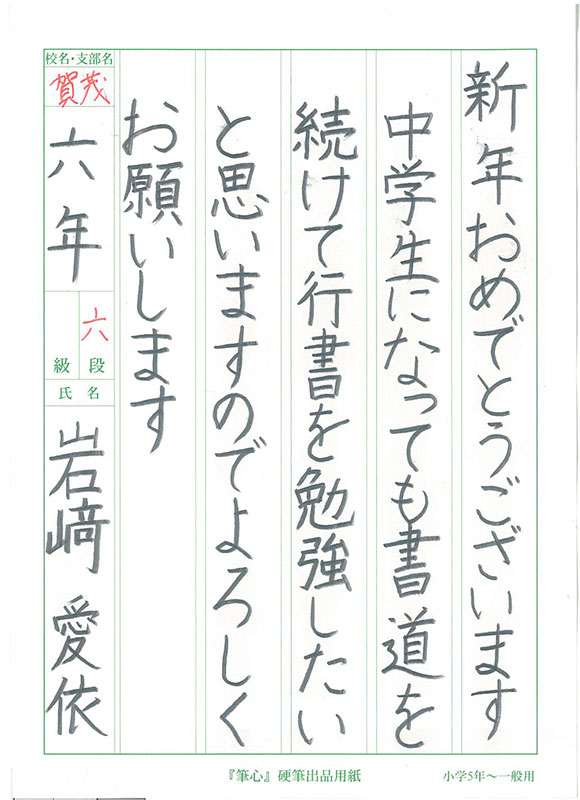 新年おめでとうございます
中学生になっても書道を
続けて行書を勉強したい
と思いますのでよろしく
お願いします
校名・支部名
賀茂
六年
六段
級
氏名
岩﨑 愛依
『筆心』硬筆出品用紙
小学5年～一般用